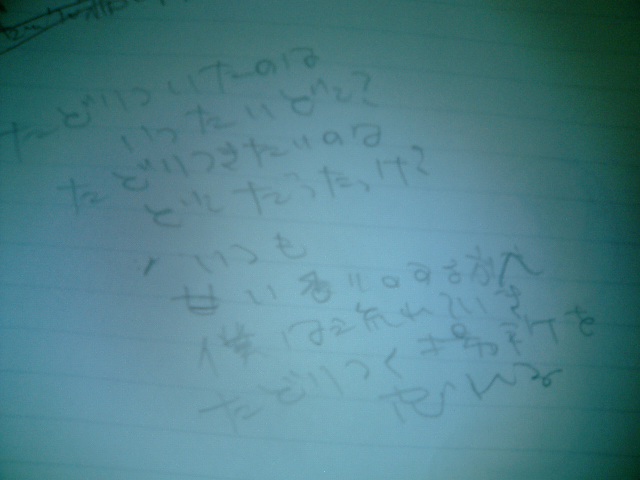 たどりついたのは
いったいどこ?
たどりつきたいのは
どこだったっけ?
いつも
甘い香りのする方へ
僕は流れていき
たどりつく場所を